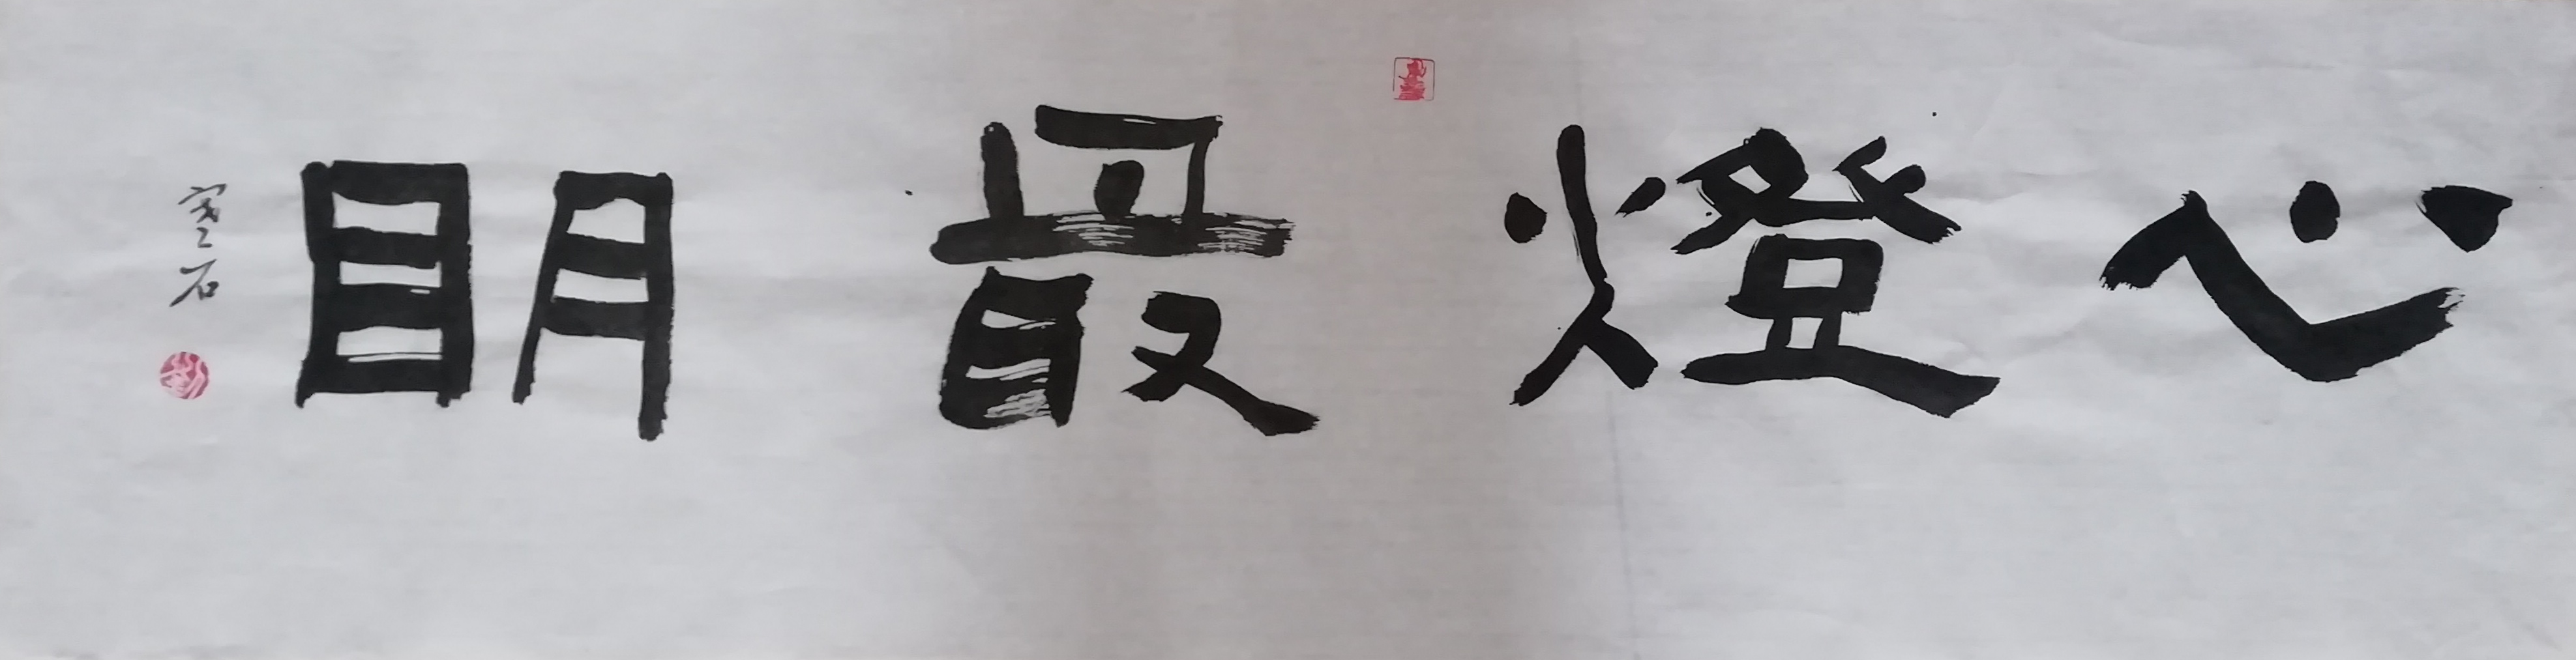 心燈最明